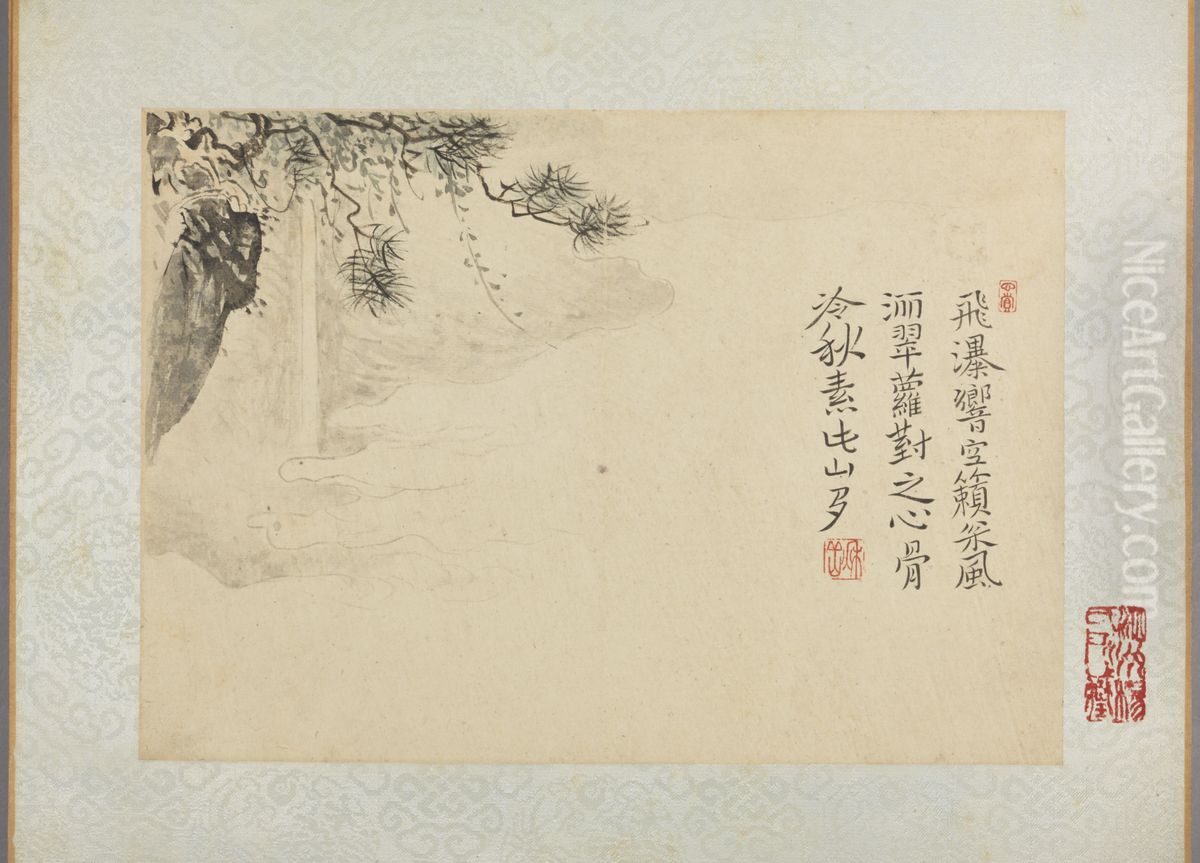 飛瀑響空籟風
翠蘿對之心骨
冷秋素此山多
NiceArtGallery.com